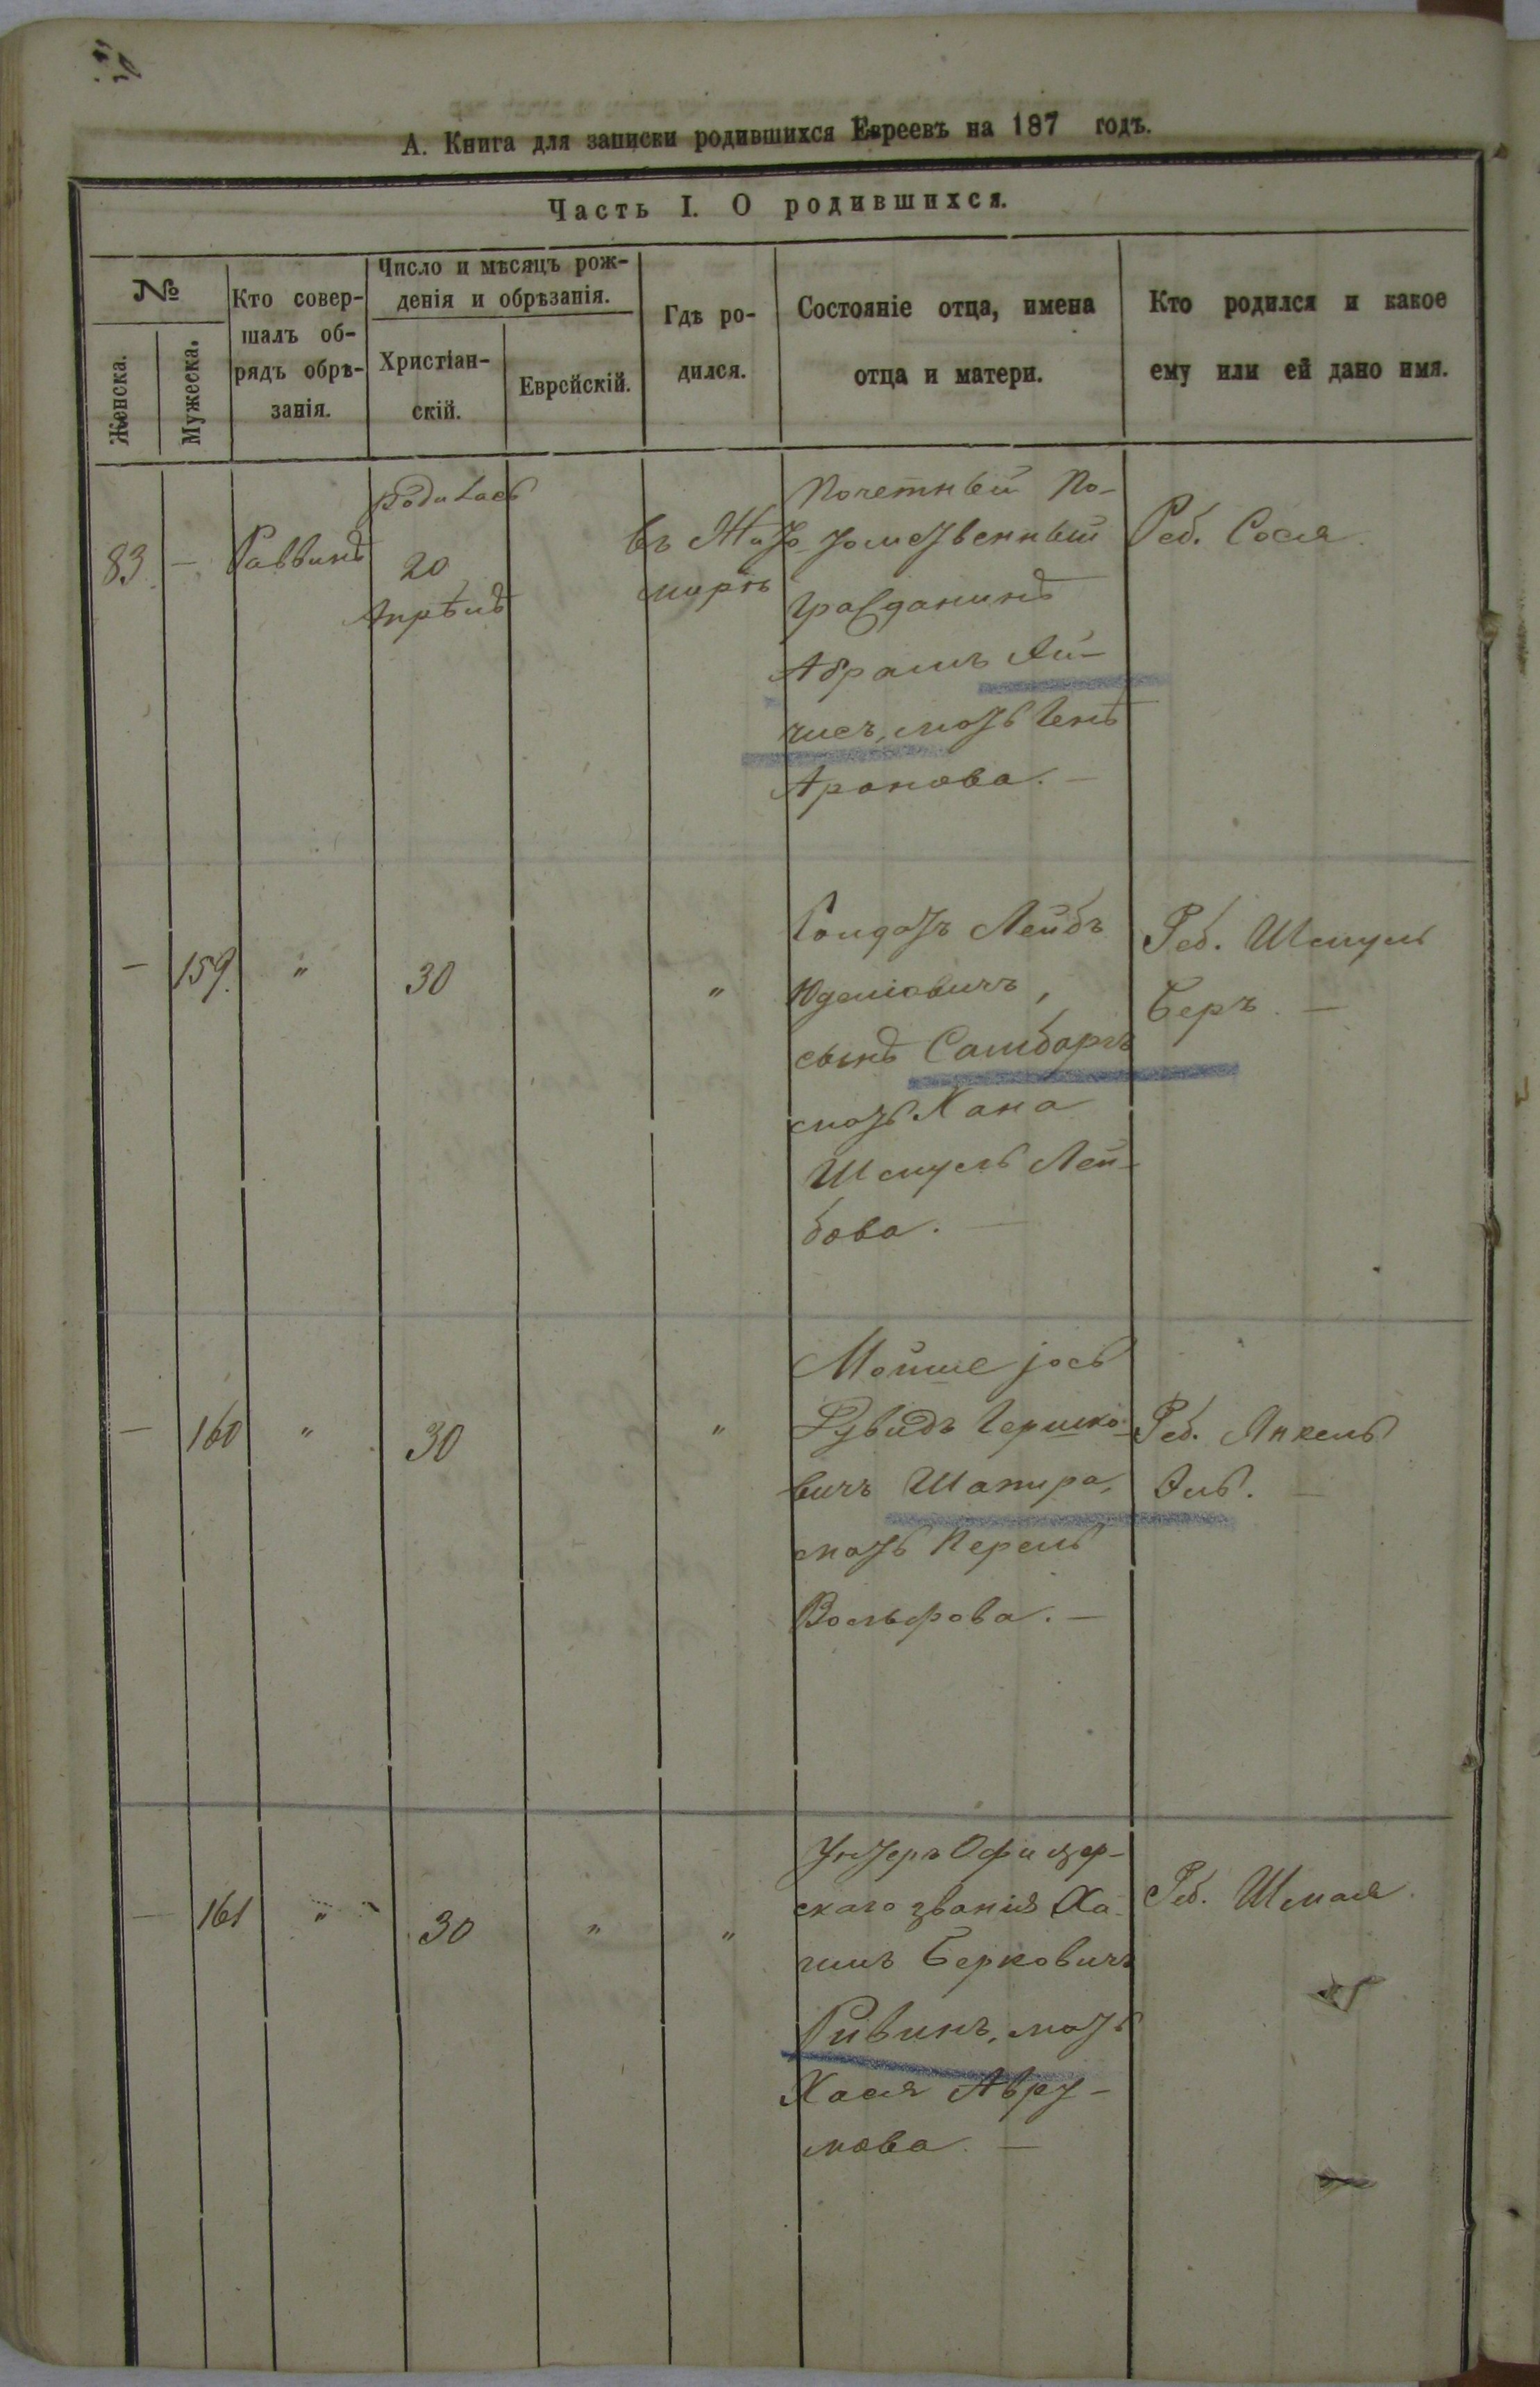 А. Книга для записки родившихся Евреевъ на 187 годъ.
Часть I. О родившихся.
№
Женска.
Мужеска.
Кто совер-
шалъ об-
рядъ обрѣ-
занія.
Число и мѣсяцъ рож-
денія и обрѣзанія.
Христіан-
скій.
Еврейскій.
Гдѣ ро-
дился.
Состояніе отца, имена
отца и матери.
Кто родился и какое
ему или ей дано имя.
83
—
Раввинъ
родилась
20
Апрѣль
въ Жито
мирѣ
Почетный По-
томственный
Гражданинъ
Абрамъ
мать
Аронова. —
Реб. Сося
—
159.
"
30
"
Солдатъ Лейбъ
сынъ
мать Хана
Шмуль Лей-
бова. —
Реб. Шмуль
Беръ. —
—
160
"
30
"
Мойше Іось
Гершко-
вичъ Шапира,
мать Перель
Вольфова. —
Реб. Янкель
—
161
"
30
"
"
Унтеръ Офицер-
скаго званія Ха-
имъ Берковичъ
Ривинъ, мать
Хася Авру-
мова. —
Реб.